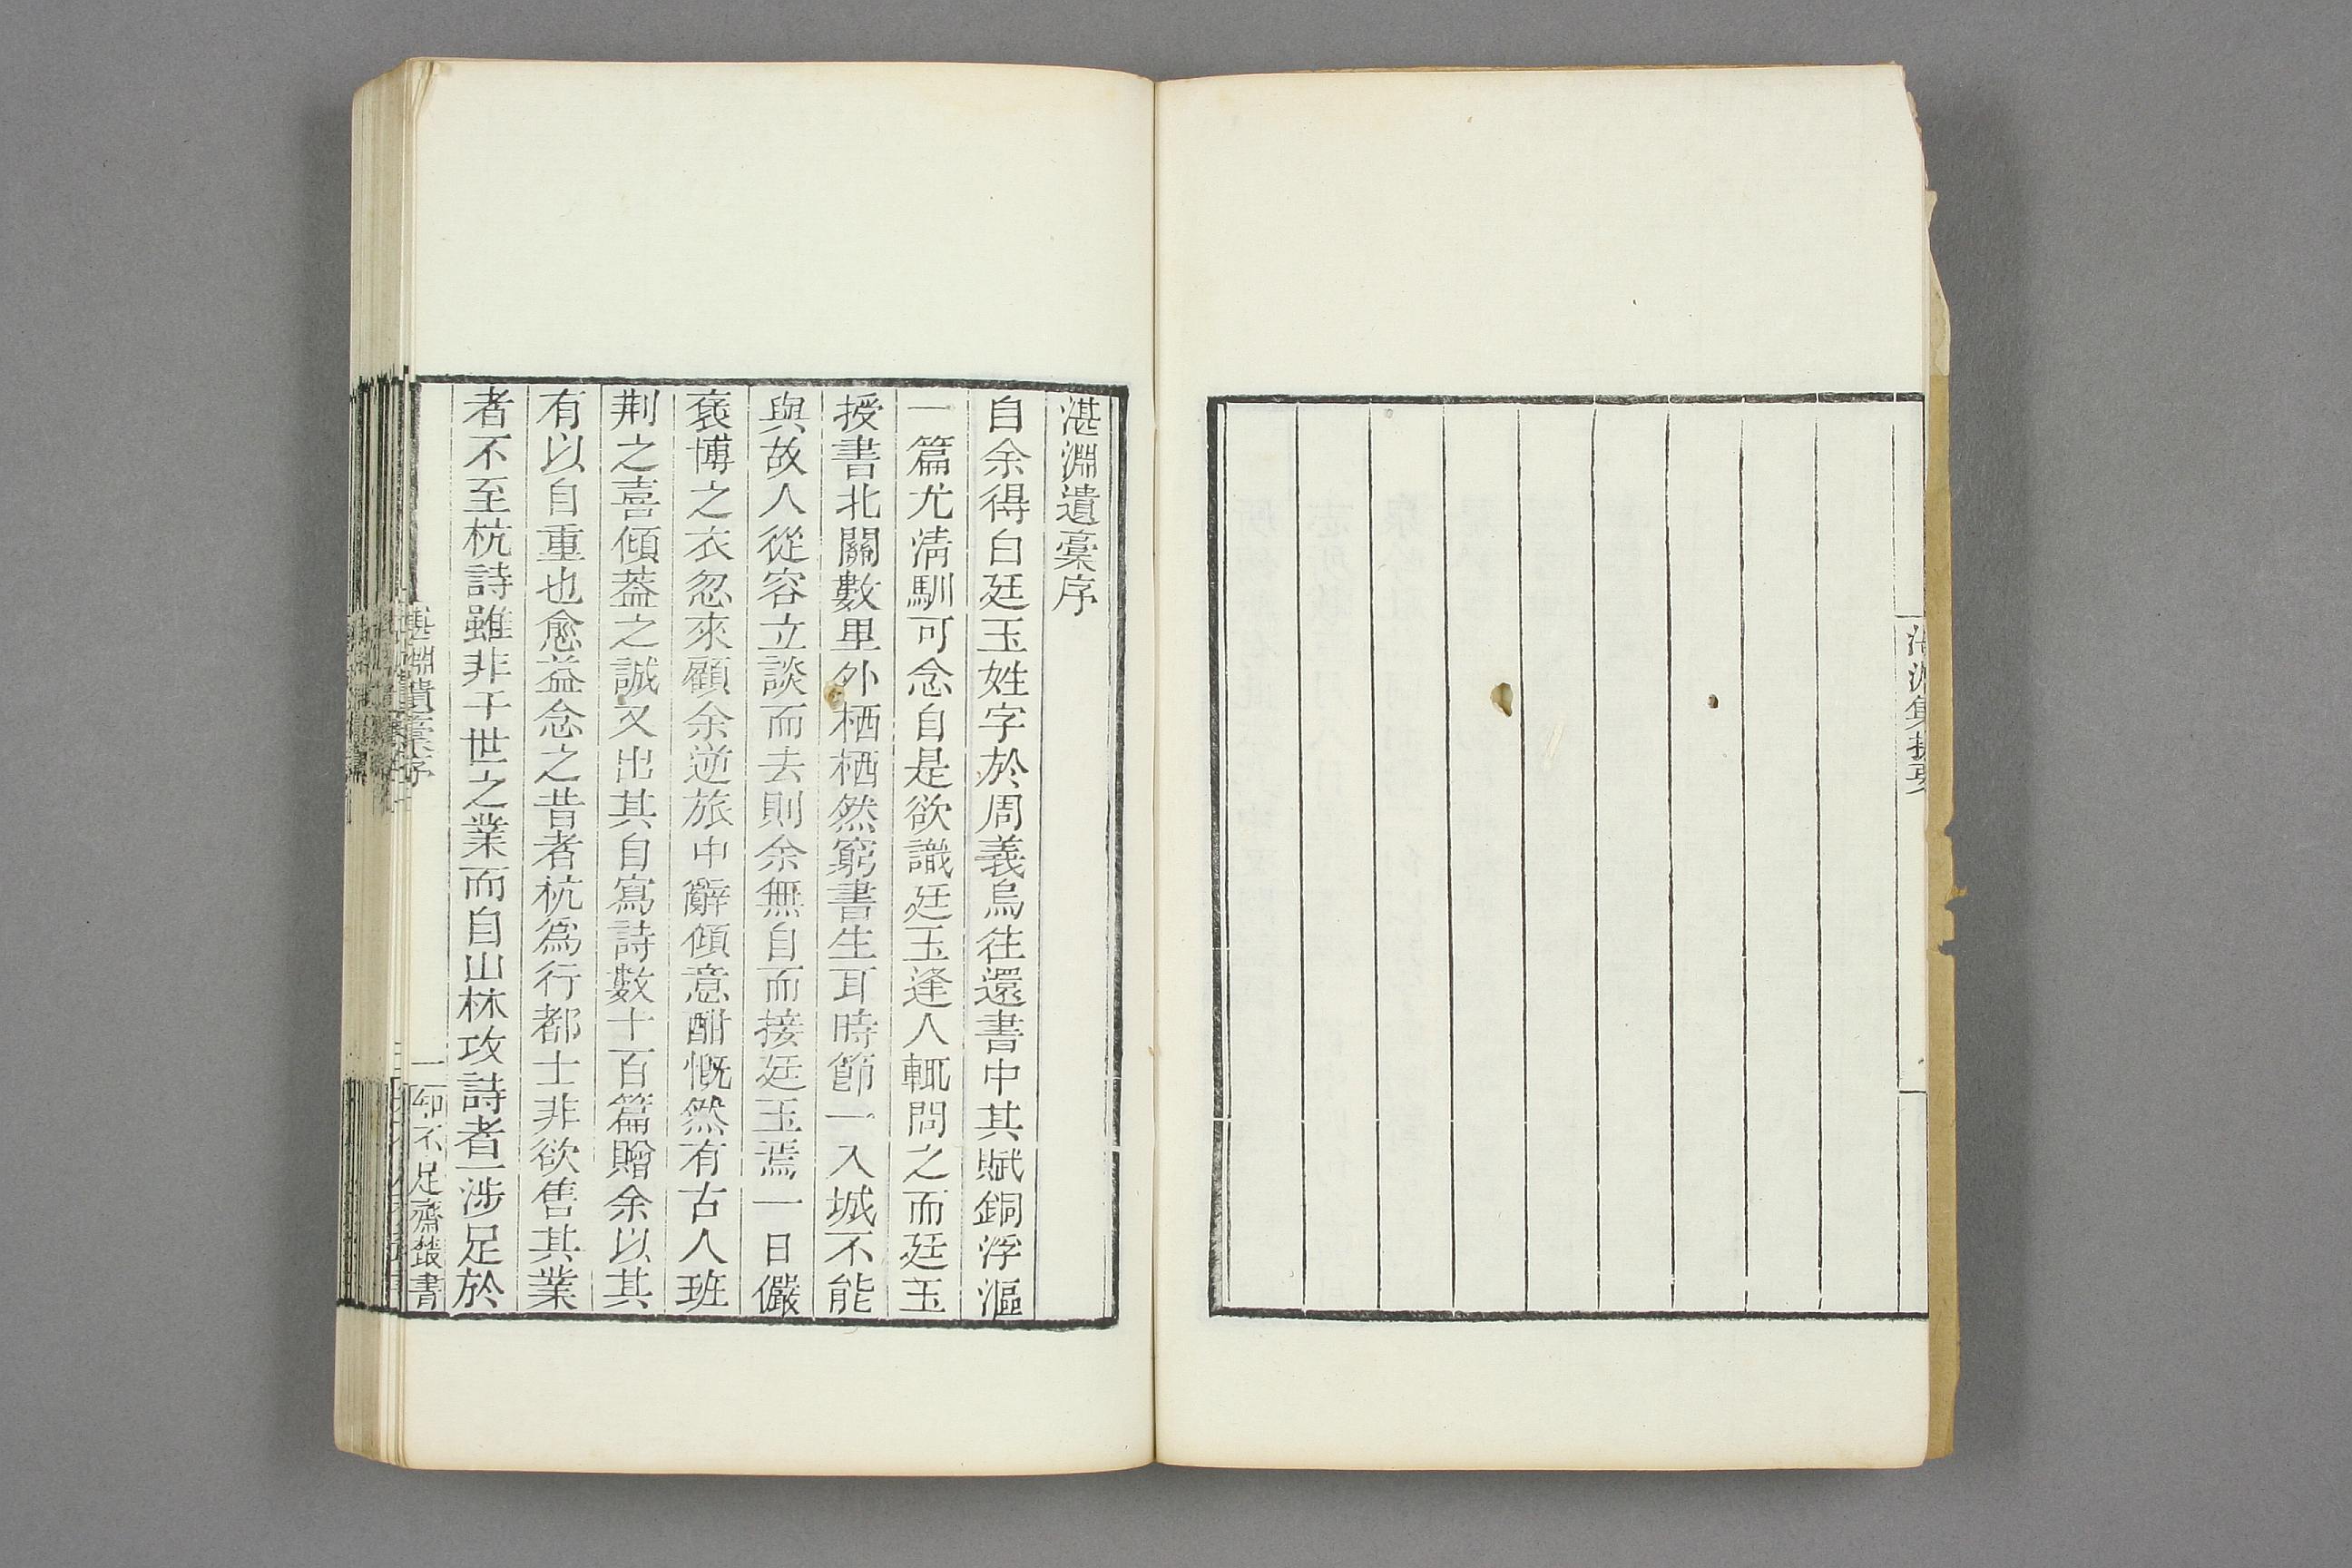 湛淵遺稾序
自余得白廷玉姓字於周義烏往還書中其賦銅浮漚
一篇尤淸馴可念自是欲識廷玉逢人輒問之而廷玉
授書北關數里外栖栖然窮書生耳時節一入城不能
與故人從容立談而去則余無自而接廷玉焉一日儼
褒博之衣忽來顧余逆旅中辭傾意酣慨然有古人班
荆之喜傾葢之誠又出其自寫詩數十百篇贈余以其
有以自重也愈益念之昔者杭爲行都士非欲售其業
者不至杭詩雖非干世之業而自山林攻詩者一涉足於
湛淵遺稾序
一
知不足齋叢書